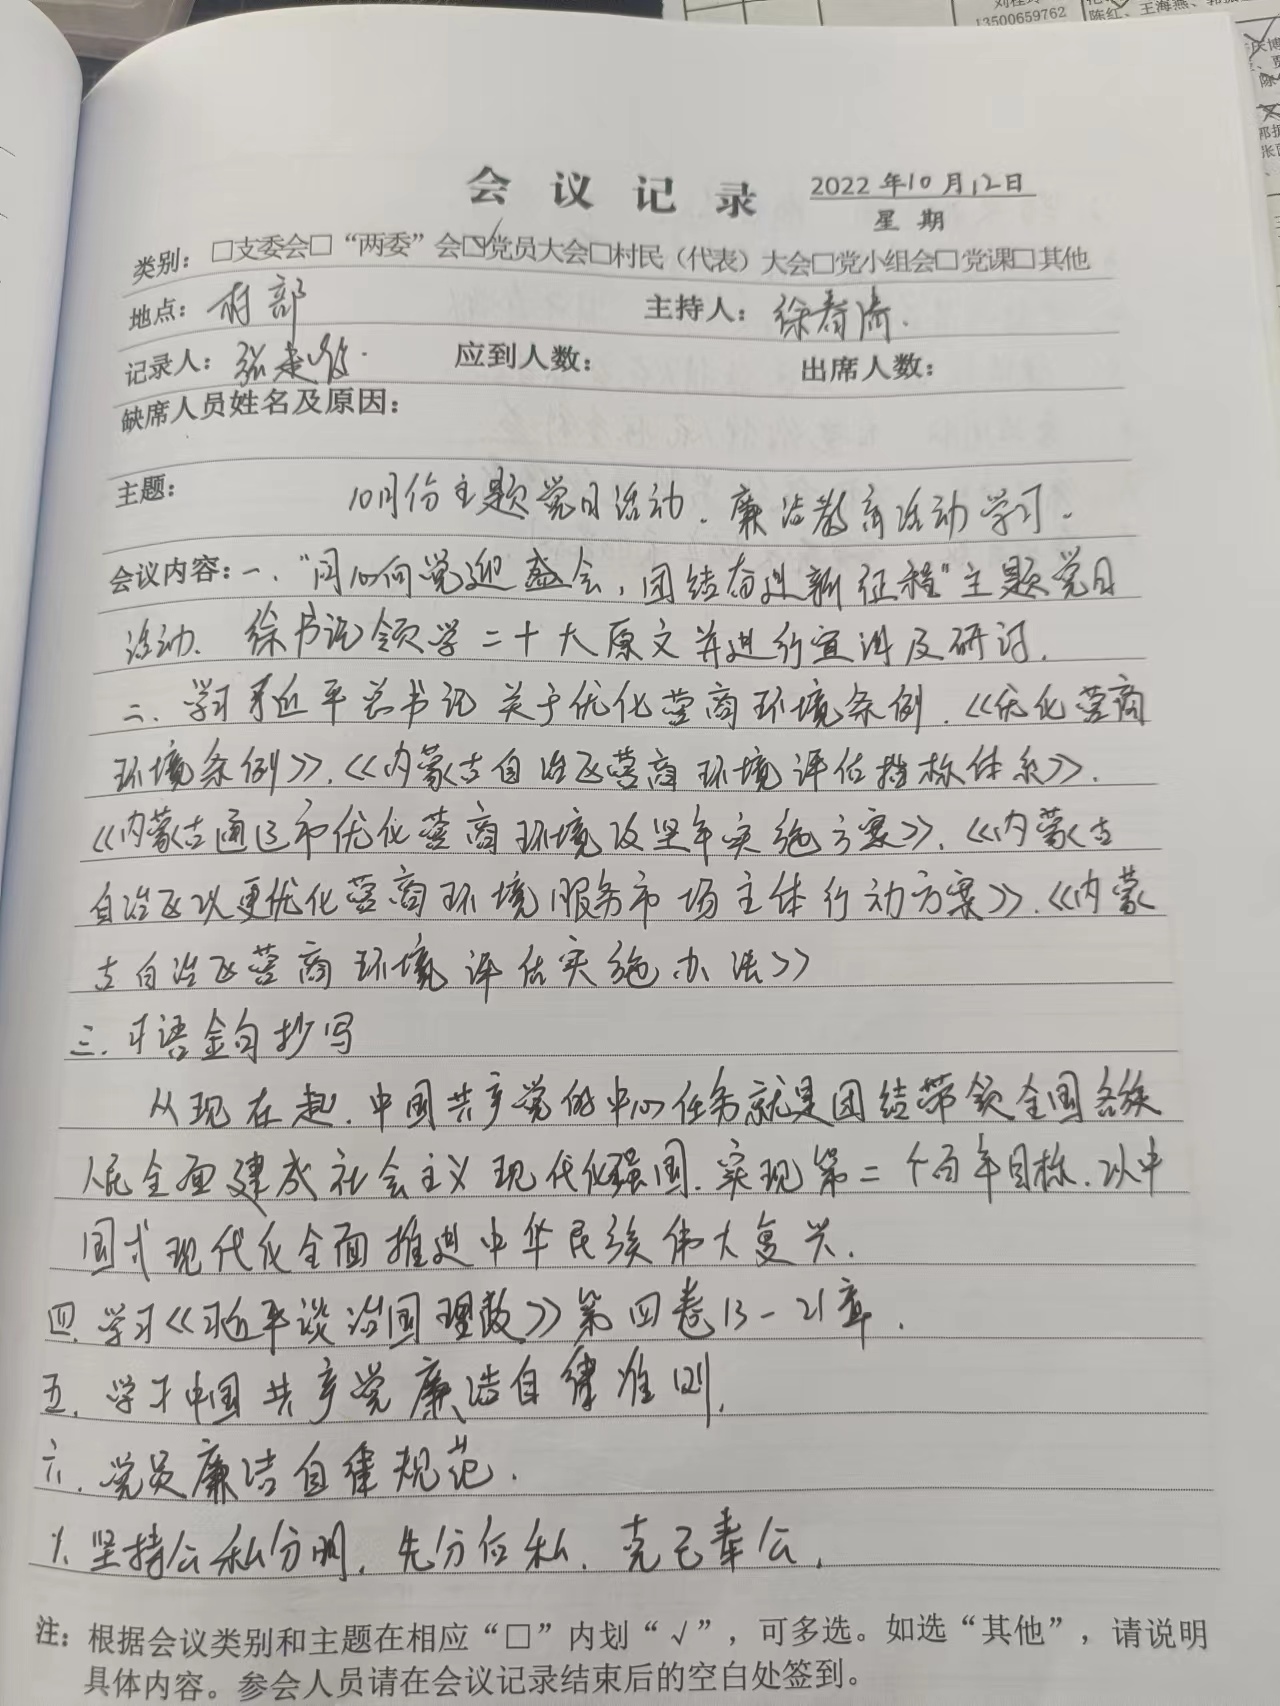 13500659762
陈红、王海燕、
会议记录 2022年10月12日
星期
类别：□支委会□“两委”会☑党员大会□村民（代表）大会□党小组会□党课□其他
地点：村部 主持人：徐春涛.
记录人：张 应到人数： 出席人数：
缺席人员姓名及原因：
主题： 10月份主题党日活动. 廉洁教育活动学习.
会议内容：一、“同心向党迎盛会，团结奋进新征程”主题党日
活动. 徐书记领学二十大原文并进行宣讲及研讨.
二、学习习近平总书记关于优化营商环境条例.《优化营商
环境条例》.《内蒙古自治区营商环境评估指标体系》.
《内蒙古通辽市优化营商环境攻坚年实施方案》.《内蒙古
自治区以更优化营商环境服务市场主体行动方案》.《内蒙
古自治区营商环境评估实施办法》
三. 习语金句抄写
从现在起. 中国共产党的中心任务就是团结带领全国各族
人民全面建成社会主义现代化强国. 实现第二个百年目标. 以中
国式现代化全面推进中华民族伟大复兴.
四. 学习《习近平谈治国理政》第四卷13-21章.
五. 学习中国共产党廉洁自律准则.
六. 党员廉洁自律规范.
1. 坚持公私分明. 先公后私. 克己奉公.
注：根据会议类别和主题在相应“□”内划“√”，可多选。如选“其他”，请说明
具体内容。参会人员请在会议记录结束后的空白处签到。